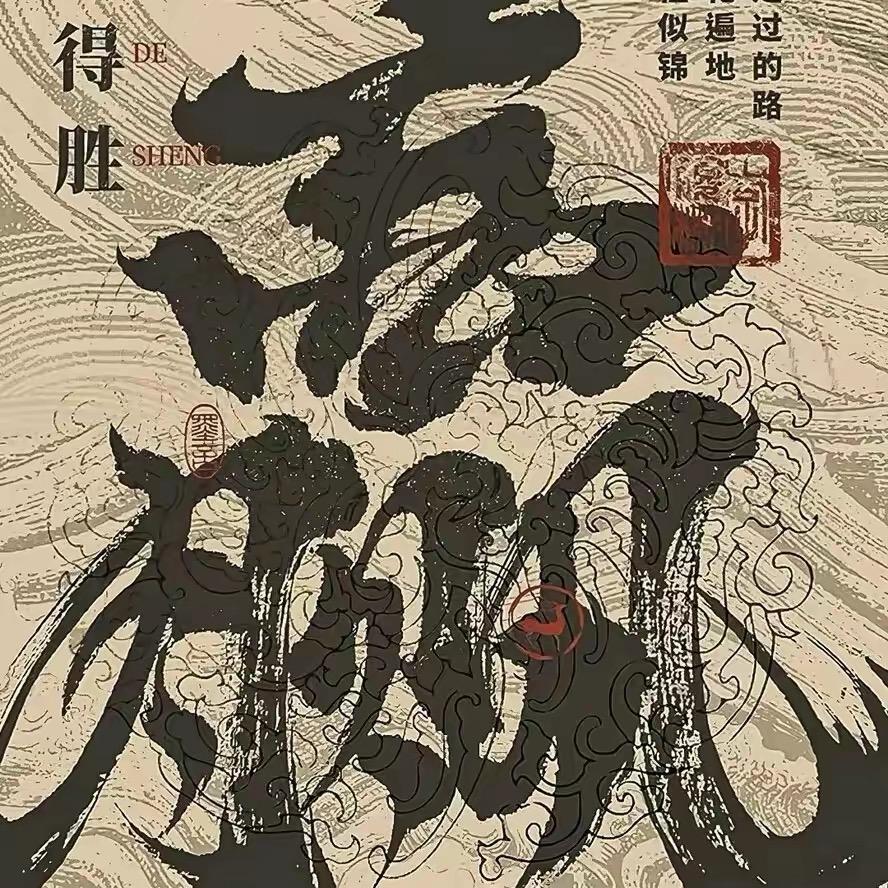 得胜
DE
SHENG
过的路
遍地
似锦
赢